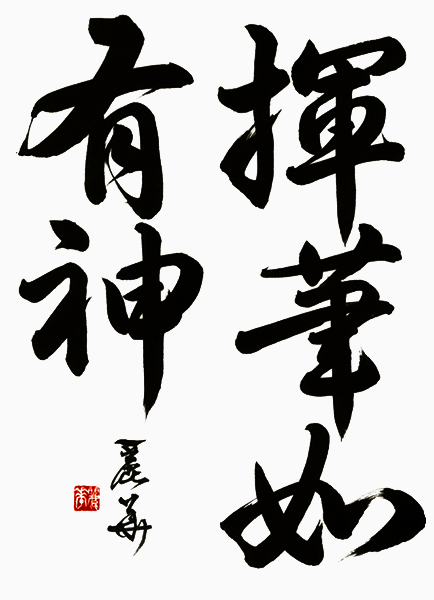 揮筆如
有神
麗華